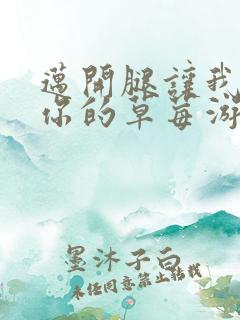 邁開腿讓我
你的草莓游
墨沐子白
未经同意禁止转载